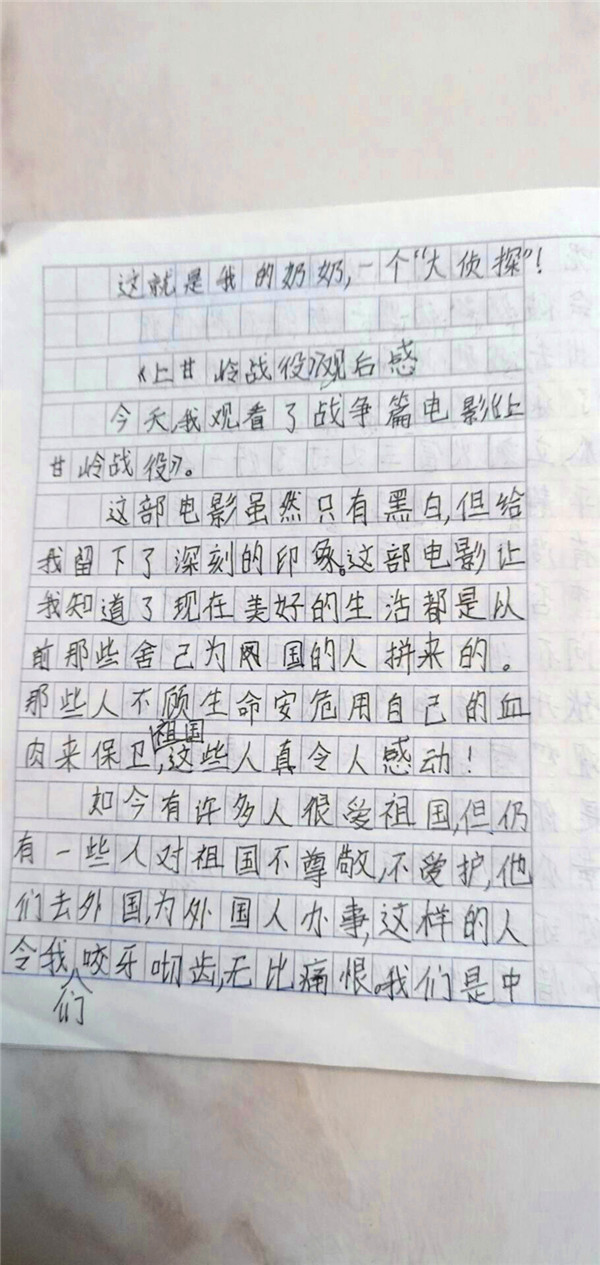 这就是我的奶奶,一个“大侦探”!
《上甘岭战役》观后感
今天,我观看了战争篇电影《上
甘岭战役》。
这部电影虽然只有黑白,但给
我留下了深刻的印象。这部电影让
我知道了现在美好的生活都是从
前那些舍己为国的人拼来的。
那些人不顾生命安危用自己的血
肉来保卫祖国,这些人真令人感动!
如今有许多人很爱祖国,但仍
有一些人对祖国不尊敬,不爱护,他
们去外国,为外国人办事,这样的人
令我们咬牙切齿,无比痛恨。我们是中